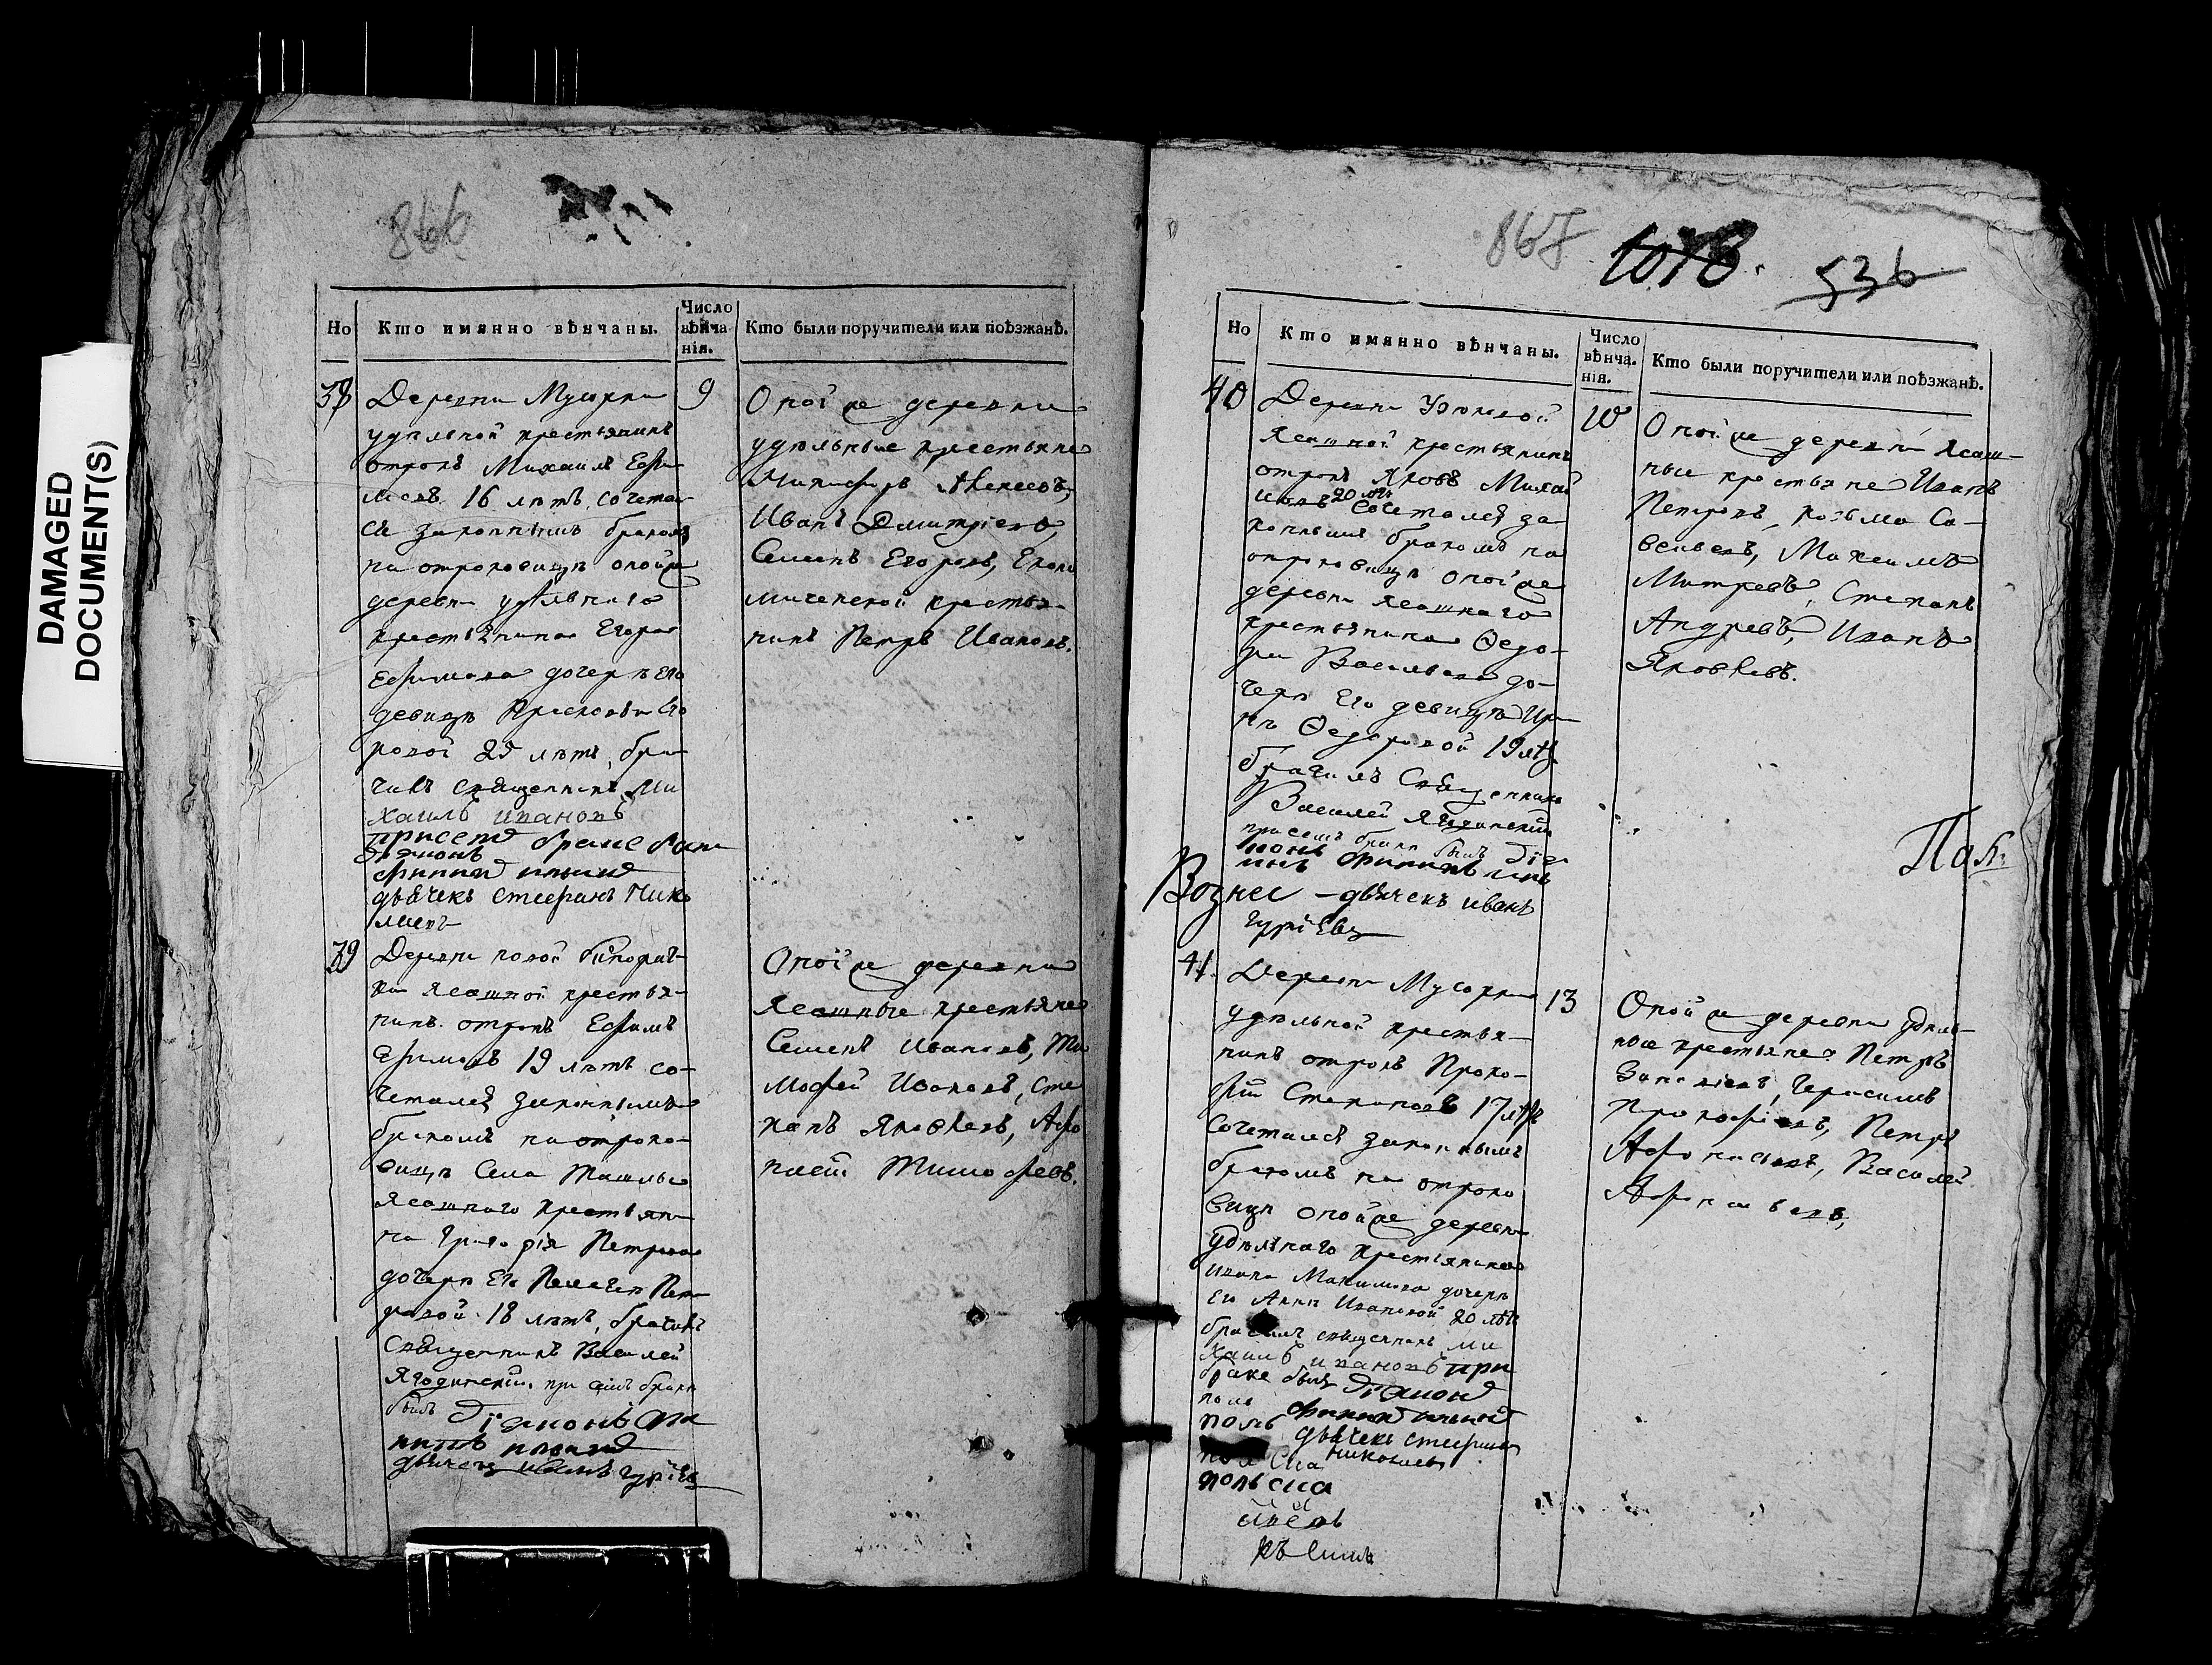 DAMAGED
DOCUMENT(S)
866
Но
Кто имянно вѣнчаны.
Число
вѣнча
нія.
Кто были поручители или поѣзжанѣ.
38
Деревни Мусорки
удѣльной крестьянинъ
отрокъ Михаилъ Ефи
мовъ 16 лѣтъ, сочетал
ся законнымъ бракомъ
на отроковицѣ оной же
деревни удѣльнаго
крестьянина Егора
Ефимова дочерѣ его
девицѣ Прасковьи Его
ровой 25 лѣтъ, бра
чилъ священникъ Ми
хаилъ ивановъ
присемъ браке былъ
дияконъ
филипъ
дьячекъ стефанъ Нико
лаевъ
9
Оной же деревни
удѣльные крестьяне
Никифоръ Алексеевъ,
Иванъ Дмитріевъ,
Семенъ Егоровъ, Еконо
мической крестья-
нинъ Петръ Ивановъ.
39
Деревни новой
ки ясашной крестья-
нинъ отрокъ Ефимъ
Ефимовъ 19 лѣтъ со-
четался законнымъ
бракомъ на отроко-
вицѣ Села Ташлы
ясашнаго крестьяни
на Григорія Петрова
дочерѣ Его Пелагеи Пет
ровой 18 лѣтъ, брачилъ
Священникъ Василей
Ягодинский. при семъ браке
былъ Діяконъ Фи
липъ
дьячекъ иванъ гуріевъ
Оной же деревни
Ясашные крестьяне
Семенъ Ивановъ, Ти
мофей Ивановъ, Сте
панъ Яковлевъ, Афо
насей Тимофеевъ.
867
1078.
536
Но
Кто имянно вѣнчаны.
Число
вѣнча.
нія.
Кто были поручители или поѣзжанѣ.
40
Деревни
Ясашной крестьянинъ
отрокъ Яковъ Михай
20 лѣтъ
ловъ Сочетался за
коннымъ бракомъ на
отроковицѣ оной же
деревни ясашнаго
крестьянина Ѳедо-
ра Васильева до-
черѣ Его девицѣ Ири
нѣ Ѳедоровой 19 лѣтъ
брачилъ Священникъ
Василей Ягодинский
при семъ браке былъ Дія
конъ филипъ
Вознес – дьячекъ иванъ
гуріевъ
10
Оной же деревни Ясаш-
ные крестьяне Иванъ
Петровъ, Козьма Са-
вельевъ, Максимъ
Митревъ, Степанъ
Андревъ, Иванъ
Яковлевъ.
41.
Деревни Мусорки
удѣльной крестья-
нинъ отрокъ Проко-
фій Степановъ 17 лѣтъ
Сочетался законнымъ
бракомъ на отроко
вицѣ оной же деревни
удѣльнаго крестьянина
Ивана Максимова дочерѣ
Его Аннѣ Ивановой 20 лѣтъ
брачилъ священникъ ми
хаилъ ивановъ при
браке былъ діяконъ
филипъ
дьячекъ стефанъ
николаевъ
13
Оной же деревни удѣль-
ные крестьяне Петръ
Герасимъ
Прокофіевъ, Петръ
Афонасьевъ, Василей
Афонасьевъ,